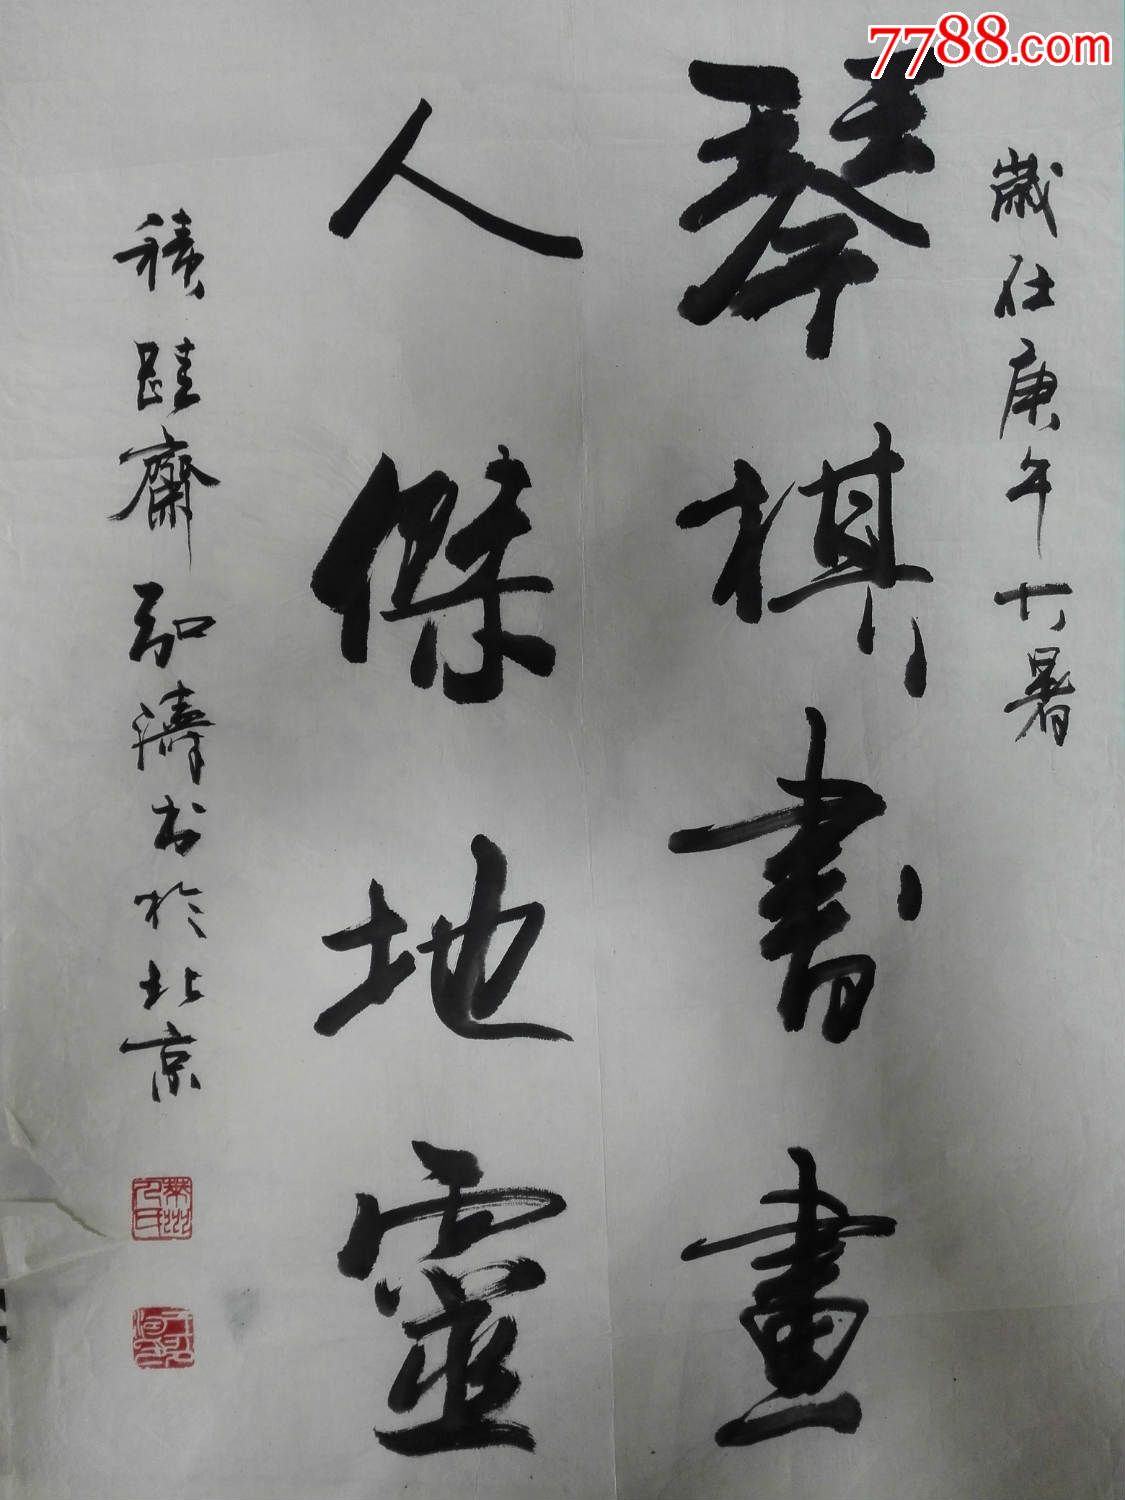 7788.com
歲在庚午大暑
琴棋書畫
人傑地靈
積跬齋弘濤书於北京